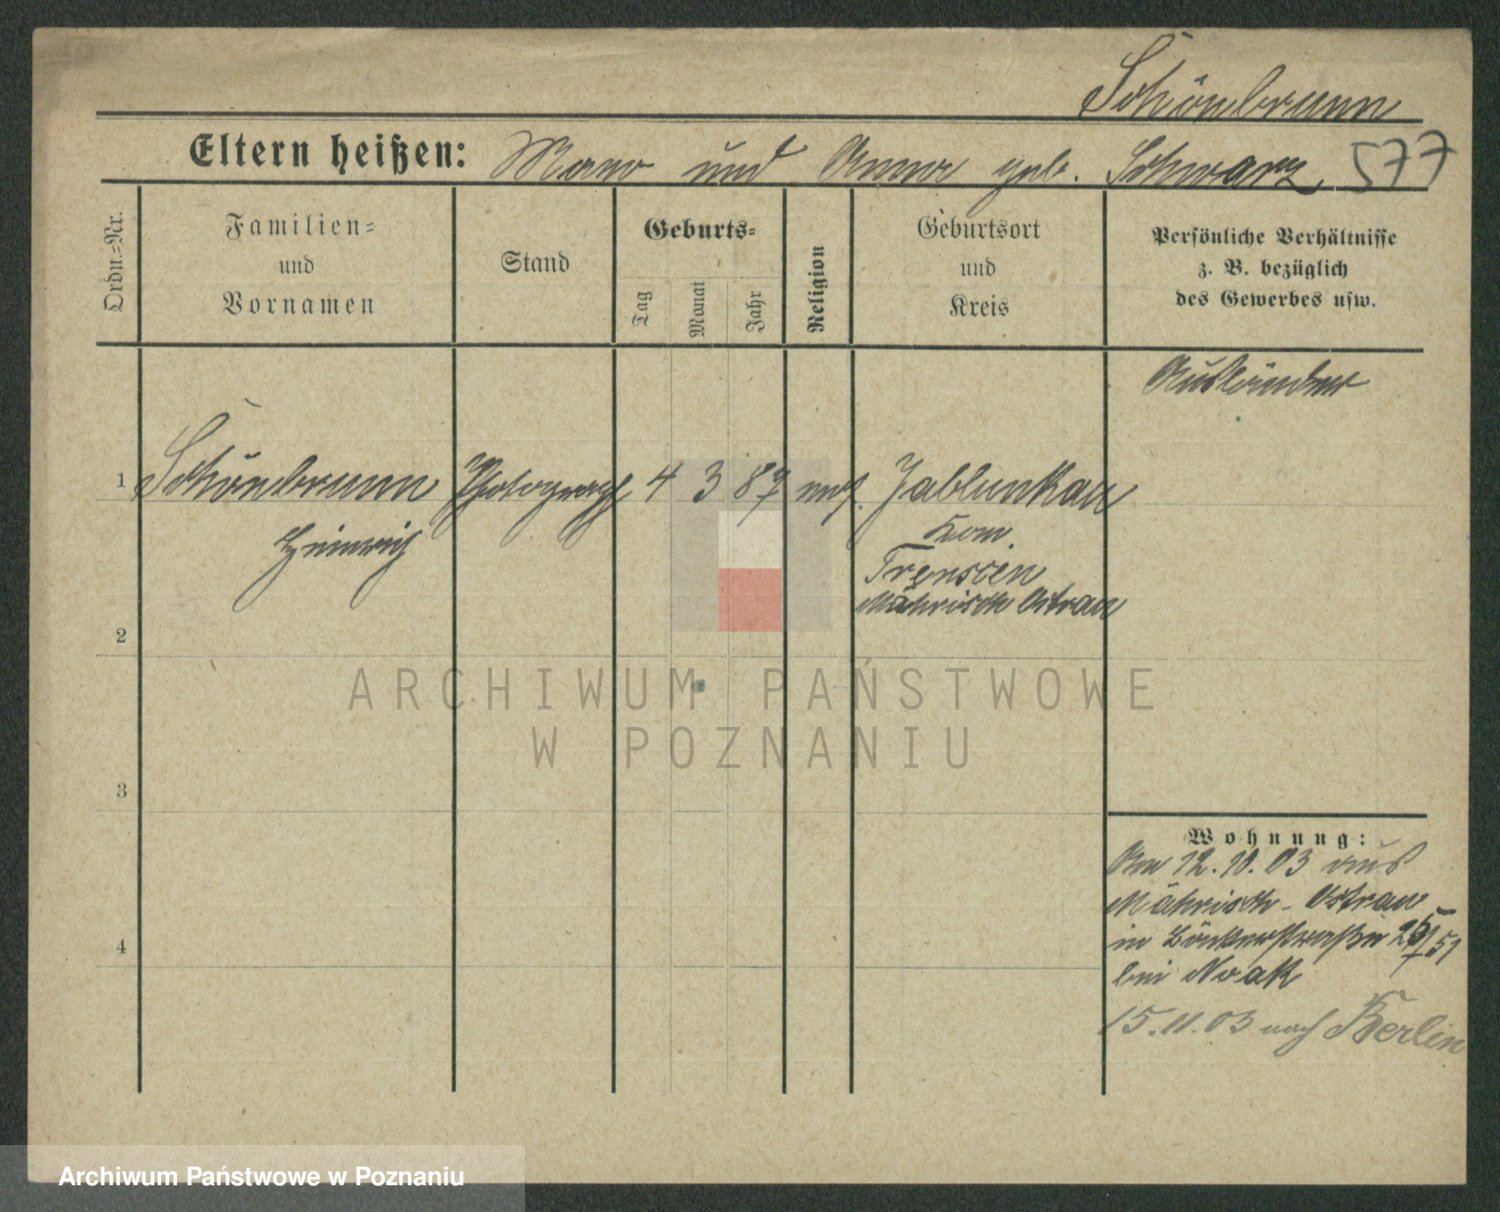 Schönbrunn
Eltern heißen: und Anna geb. Schwarz 577
Ordn.=Nr.
Familien=
und
Vornamen
Stand
Geburts=
Tag
Monat
Jahr
Religion
Geburtsort
und
Kreis
Persönliche Verhältnisse
z. B. bezüglich
des Gewerbes usw.
Ausländer
1 Schönbrunn Photograph 4 3 87 mos. Jablunkau
Heinrich
Kom.
Trenscen
Mährisch Ostrau
2
3
4
Wohnung:
Am 12.10.03 aus
Mährisch-Ostrau
in
bei Noak
15.11.03 nach Berlin
ARCHIWUM PAŃSTWOWE
W POZNANIU
Archiwum Państwowe w Poznaniu